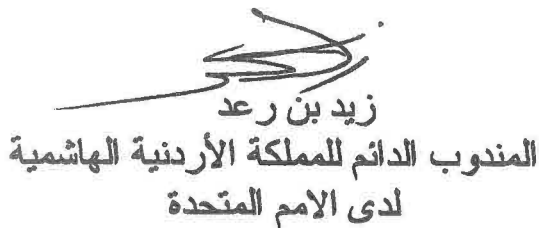 زيد بن رعد
المندوب الدائم للمملكة الأردنية الهاشمية
لدى الامم المتحدة